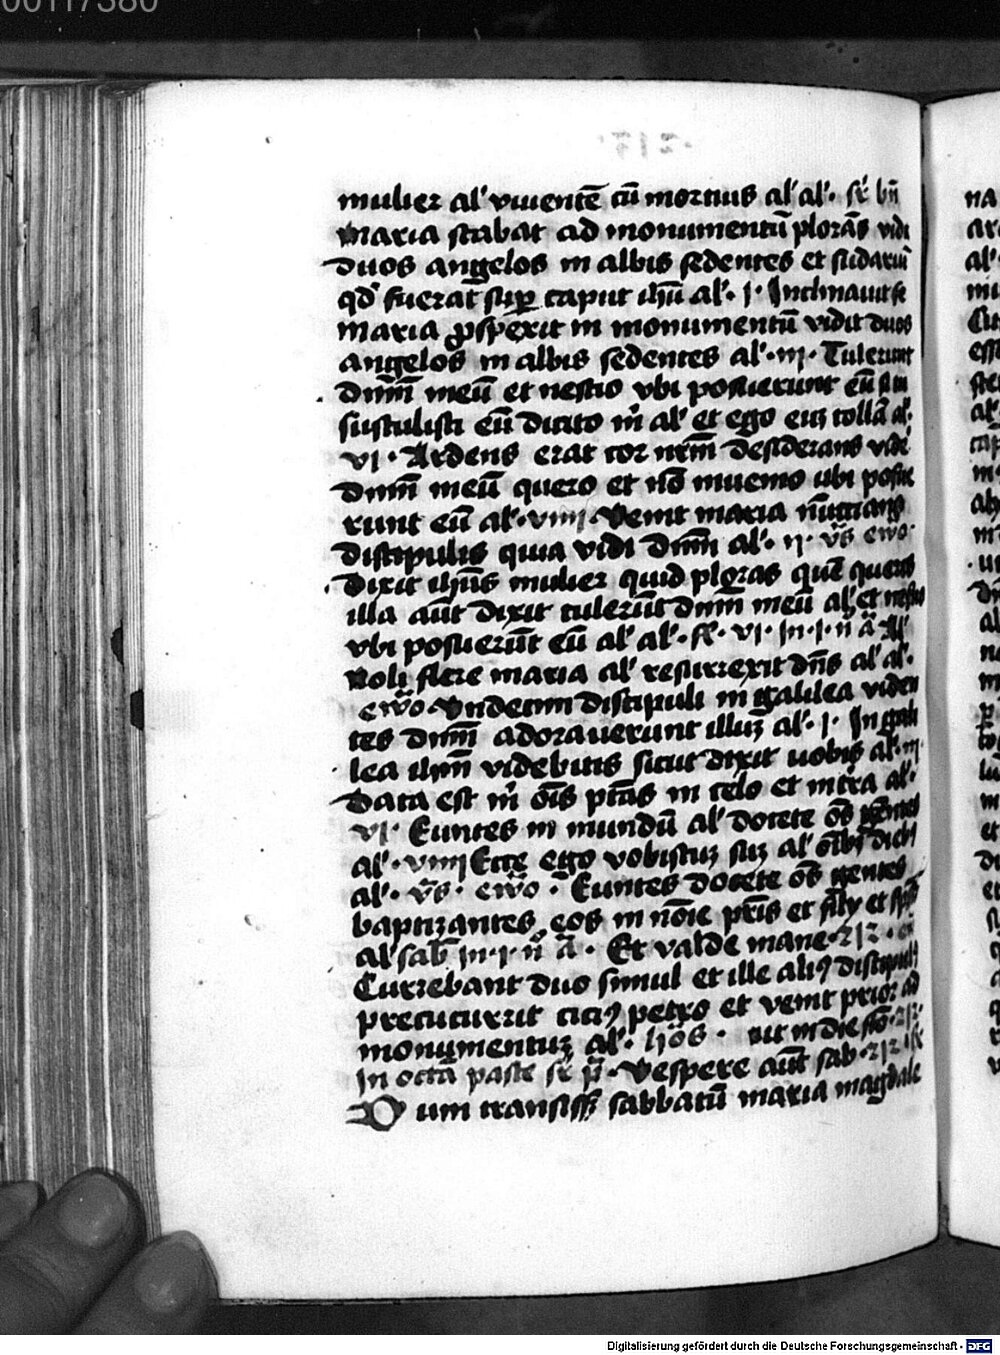 00117380
mulier al' viuentē cū mortuis al' al'· fe' bn̄
Maria stabat ad monumentū plorās vidi
duos angelos in albis sedentes et sudariū
qd' fuerat sup caput ihū al'· j· Inclinauit se
maria ꝓspexit in monumentū vidit duos
angelos in albis sedentes al'· iij· Tulerunt
dnm̄ meū et nescio vbi posuerunt eū si tu
sustulisti eū dicito m̄ al' et ego euȝ tollā al'·
vj· Ardens erat cor nrm̄ desiderans vide'
dnm̄ meū quero et nō inuenio ubi posue
runt eū al'· viiij Venit maria nūtcians
discipulis quia vidi dnm̄ al'· ij· v̄s ew̄o·
Dixit ihūs mulier quid ploras quē queris
illa aūt dixit tulerūt dnm̄ meū al' et nescio
vbi posuerūt eū al' al'· fe'· vj· in· j· n̄ ā
Noli flere maria al' resurrexit dn̄s al' al'·
ew̄o Vndecim discipuli in galilea viden
tes dnm̄ adorauerunt illuȝ al'· j· In gali
lea ihm̄ videbitis sicut dixit uobis al'· iij·
Data est m̄ oīs ptās in celo et in tra al'·
vj· Euntes in mundū al' docete ōs gentes
al'· viiij Ecce ego vobiscuȝ suȝ al' oīb' dieb'
al'· v̄s· ew̄o· Euntes docete ōs gentes
baptizantes eos in nōie pr̄is et filij et sp̄s
al' sab̄ in· j· n̄ ā· Et valde mane·
Currebant duo simul et ille ali' discipul'
precucurrit citi' petro et venit prior ad
monumentuȝ al'· ut in die sco·
In octā pasce Vespere aūt sab·
Dum transiss; sabbatū maria magdale
Digitalisierung gefördert durch die Deutsche Forschungsgemeinschaft - DFG